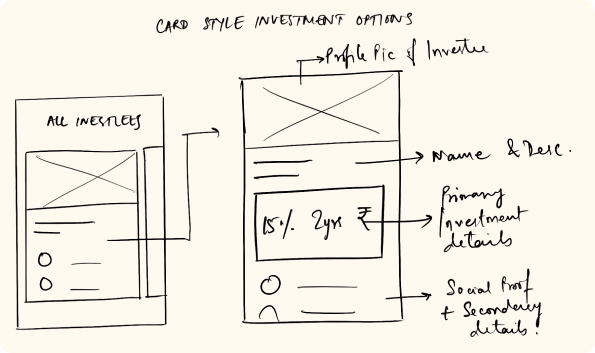 CARD STYLE INVESTMENT OPTIONS
Profile Pic of Investee
ALL INESTEES
Name & Desc.
15% 2yrs ₹
Primary
Investment
details
Social Proof
+ Secondary
details.